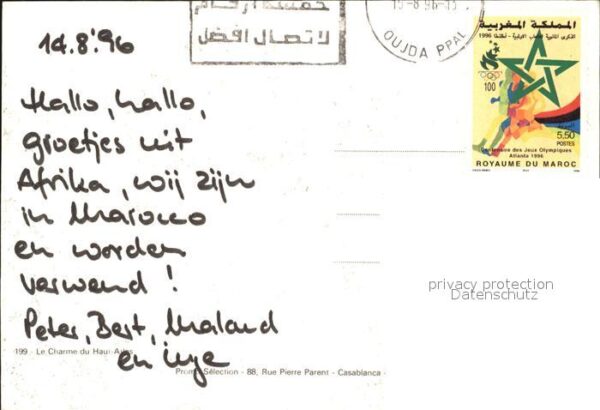 14.8.'96
خمسة أرقام
لاتصال افضل
15-8-96-13
OUJDA PPAL
المملكة المغربية
1996
100
5,50
POSTES
Centenaire des Jeux Olympiques
Atlanta 1996
ROYAUME DU MAROC
Hallo, hallo,
groetjes uit
Afrika, wij zijn
in Marocco
en worden
verwend!
Peter, Bert, Maland
en Inge
privacy protection
Datenschutz
199 - Le Charme du Haut Atlas
Promo Sélection - 88, Rue Pierre Parent - Casablanca -